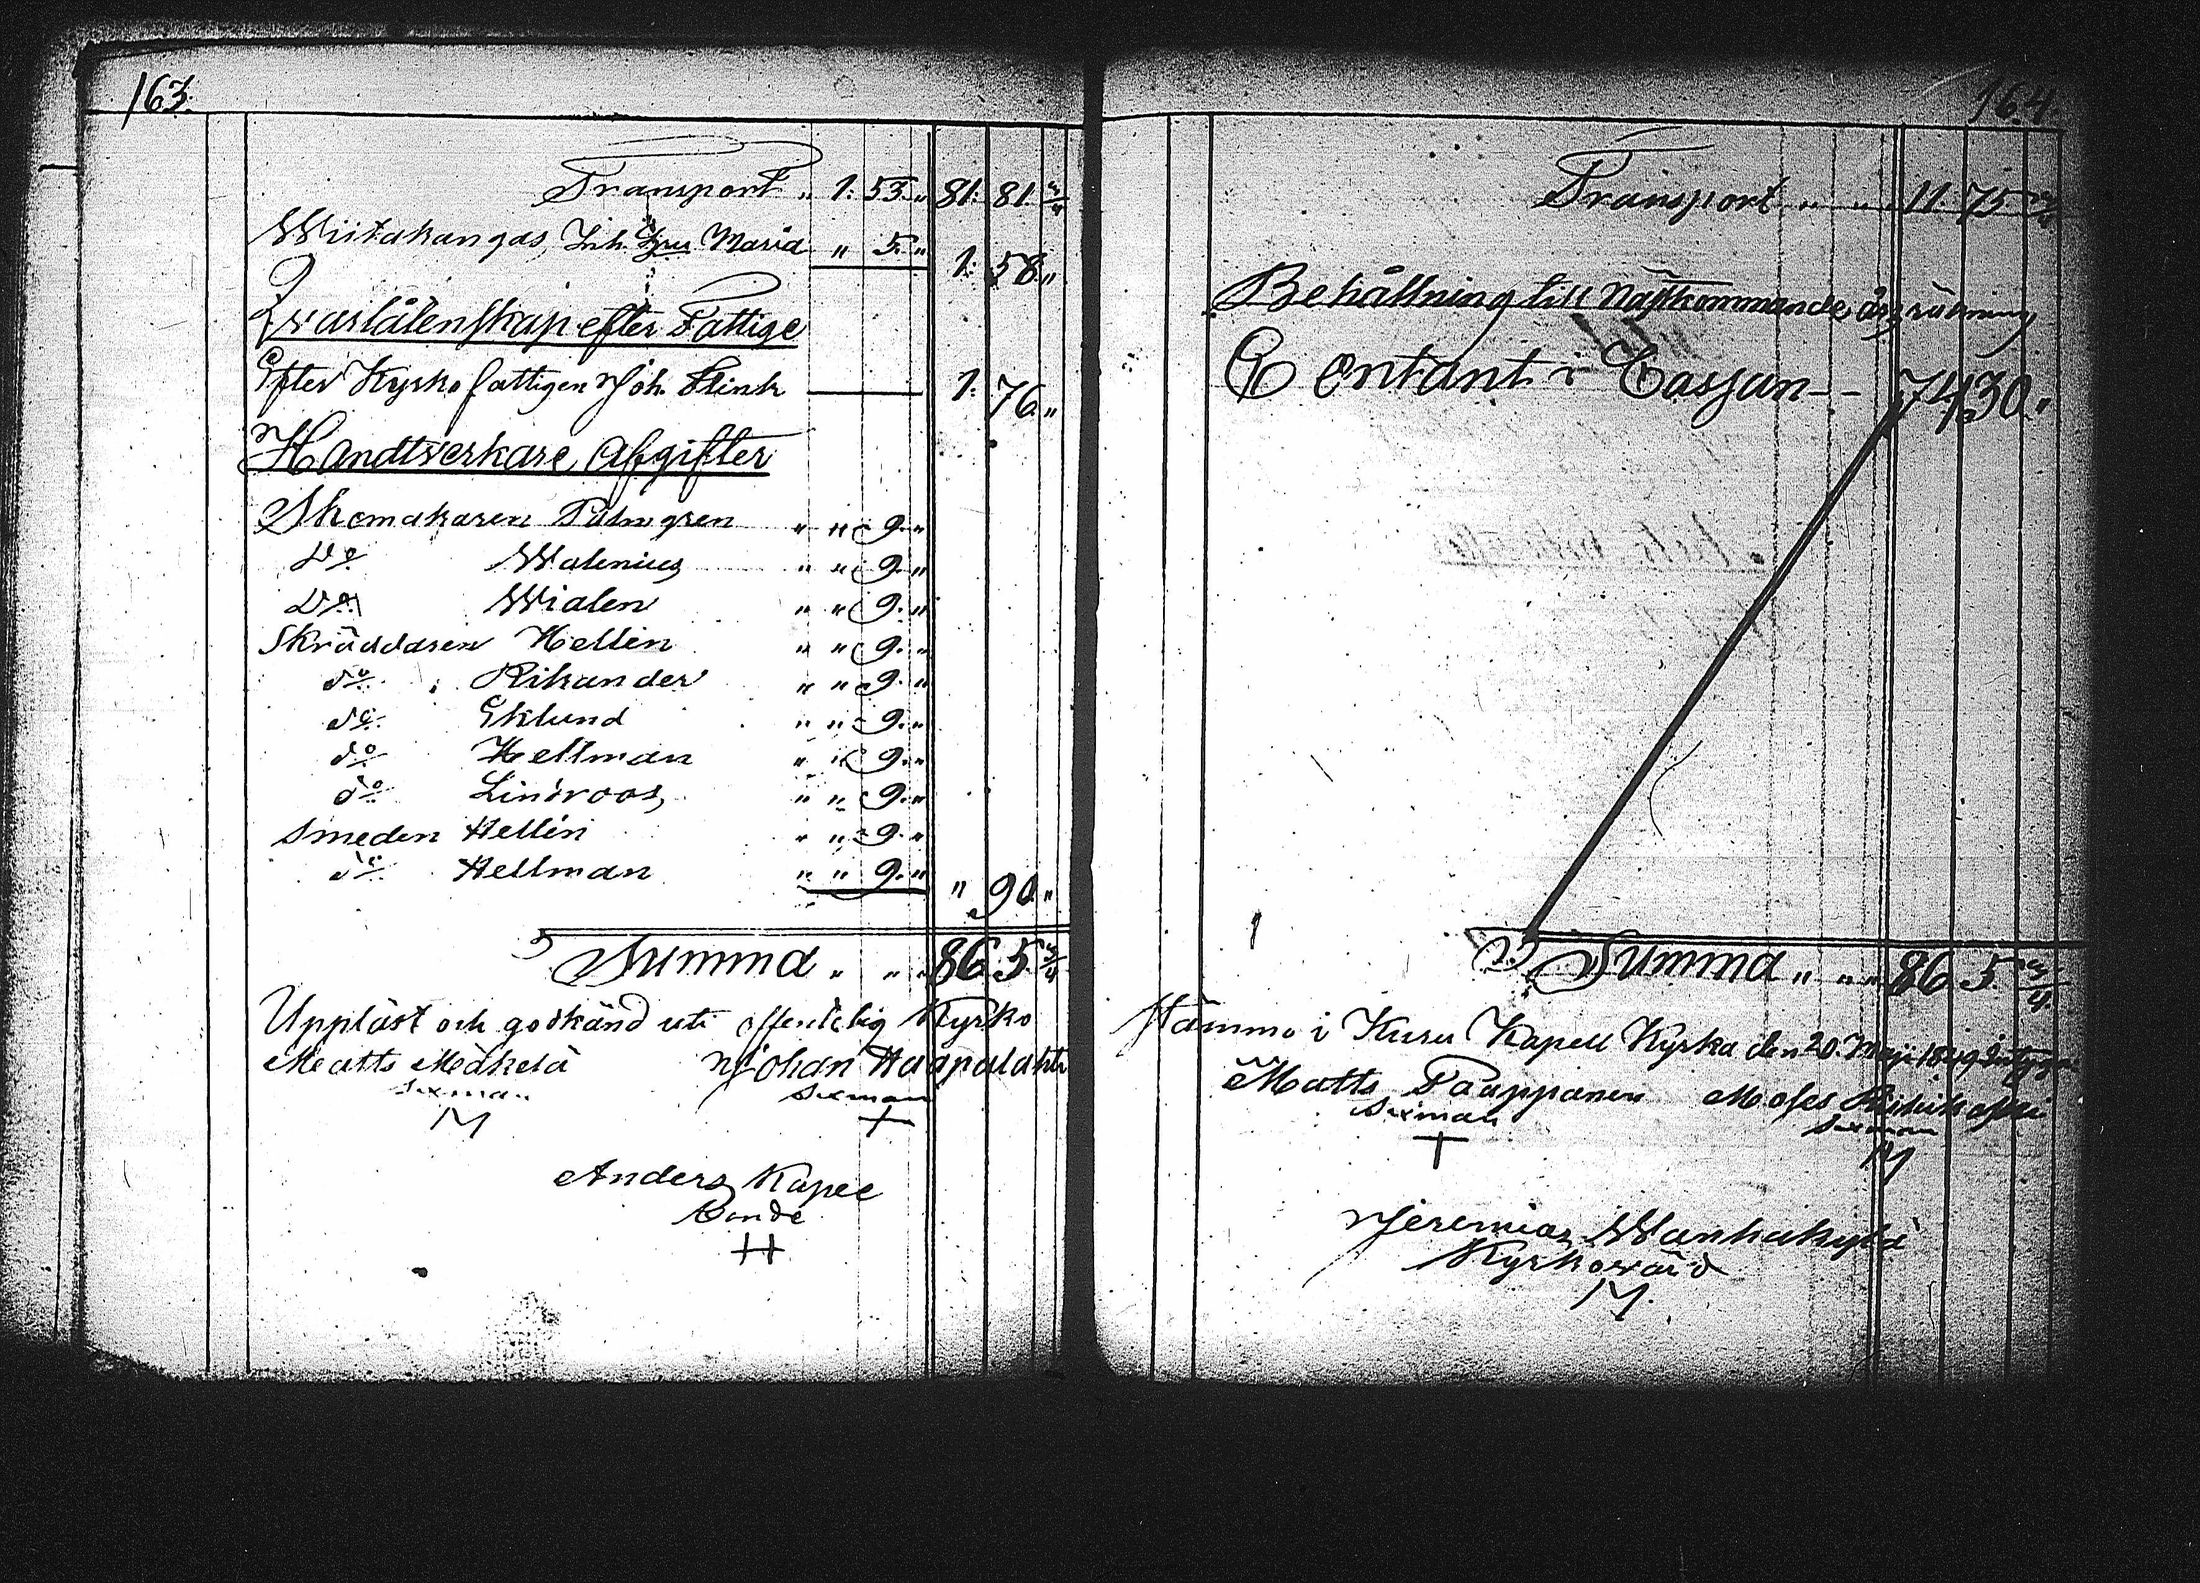 163.
Transport „ 1. 53. „ 81. 81 3/4
Wiitakangas Inh. Hru Maria „ 5. „ 1. 58. „
Qvarlåtenskap efter Fattige
Efter Kyrko fattigen Joh. Flink 1. 76 „
Handtverkare Afgifter
Skomakaren Palmgren „ „ 9. „
Do Walenius „ „ 9. „
Do Wialen „ „ 9. „
Skräddaren Hellin „ „ 9. „
do Rikander „ „ 9. „
do Eklund „ „ 9. „
do Hellman „ „ 9. „
do Lindroos „ „ 9. „
Smeden Hellin „ „ 9. „
do Hellman „ „ 9. „ „ 90. „
Summa „ „ 86. 5 3/4
Uppläst och godkänd uti offentelig Kyrko
Matts Mäkelä Johan Haapalahti
Sexman Sexman
M +
Anders Kapee
Bonde
++
164.
Transport „ „ 11. 75 3/4
Behållning till Nästkommande årsräkning
Contant i Cassan - - 74. 30. „
Summa „ „ „ 86 5 3/4
Stämma i Kuru Kapell Kyrka den 20. Maji 1849
Matts Paappanen Moses
Sexman Sexman
+ M
Jeremias Wanhakylä
Kyrkovärd
M.